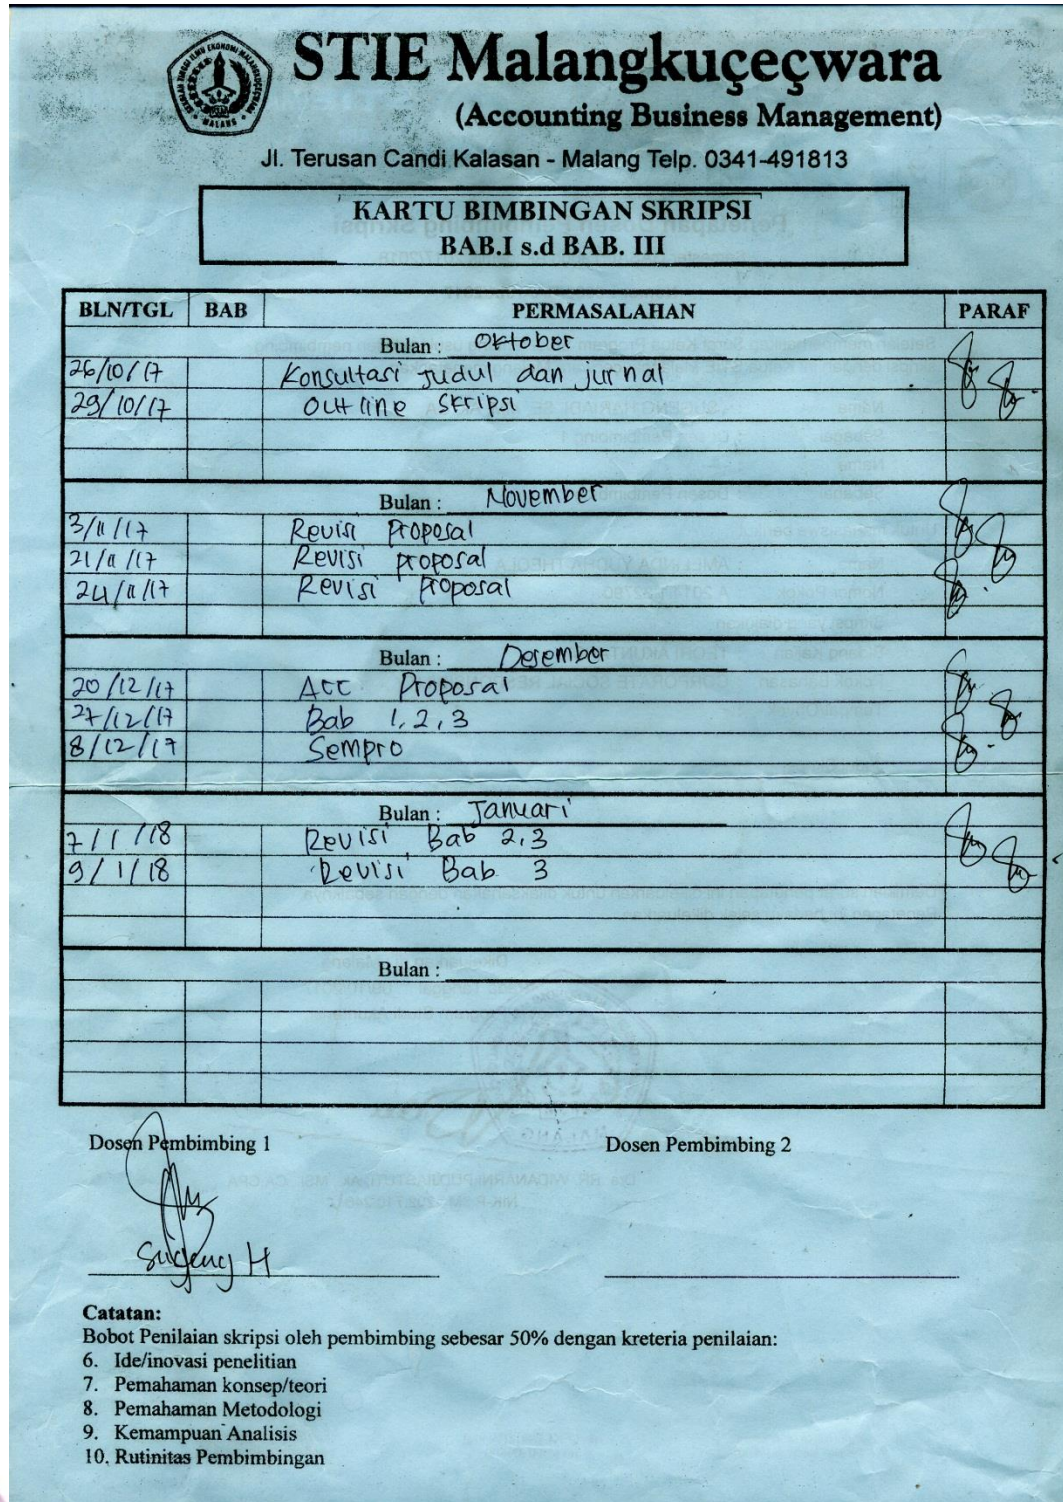 STIE Malangkuçeçwara
(Accounting Business Management)
Jl. Terusan Candi Kalasan - Malang Telp. 0341-491813
KARTU BIMBINGAN SKRIPSI
BAB.I s.d BAB. III
BLN/TGL BAB PERMASALAHAN PARAF
Bulan : Oktober
26/10/17 Konsultasi Judul dan jurnal
29/10/17 Outline Skripsi
Bulan : November
3/11/17 Revisi Proposal
21/11/17 Revisi proposal
24/11/17 Revisi Proposal
Bulan : Desember
20/12/17 Acc Proposal
27/12/17 Bab 1, 2, 3
8/12/17 Sempro
Bulan : Januari
7/1/18 Revisi Bab 2,3
9/1/18 Revisi Bab 3
Bulan :
Dosen Pembimbing 1 Dosen Pembimbing 2
Sugeng H
Catatan:
Bobot Penilaian skripsi oleh pembimbing sebesar 50% dengan kreteria penilaian:
6. Ide/inovasi penelitian
7. Pemahaman konsep/teori
8. Pemahaman Metodologi
9. Kemampuan Analisis
10. Rutinitas Pembimbingan